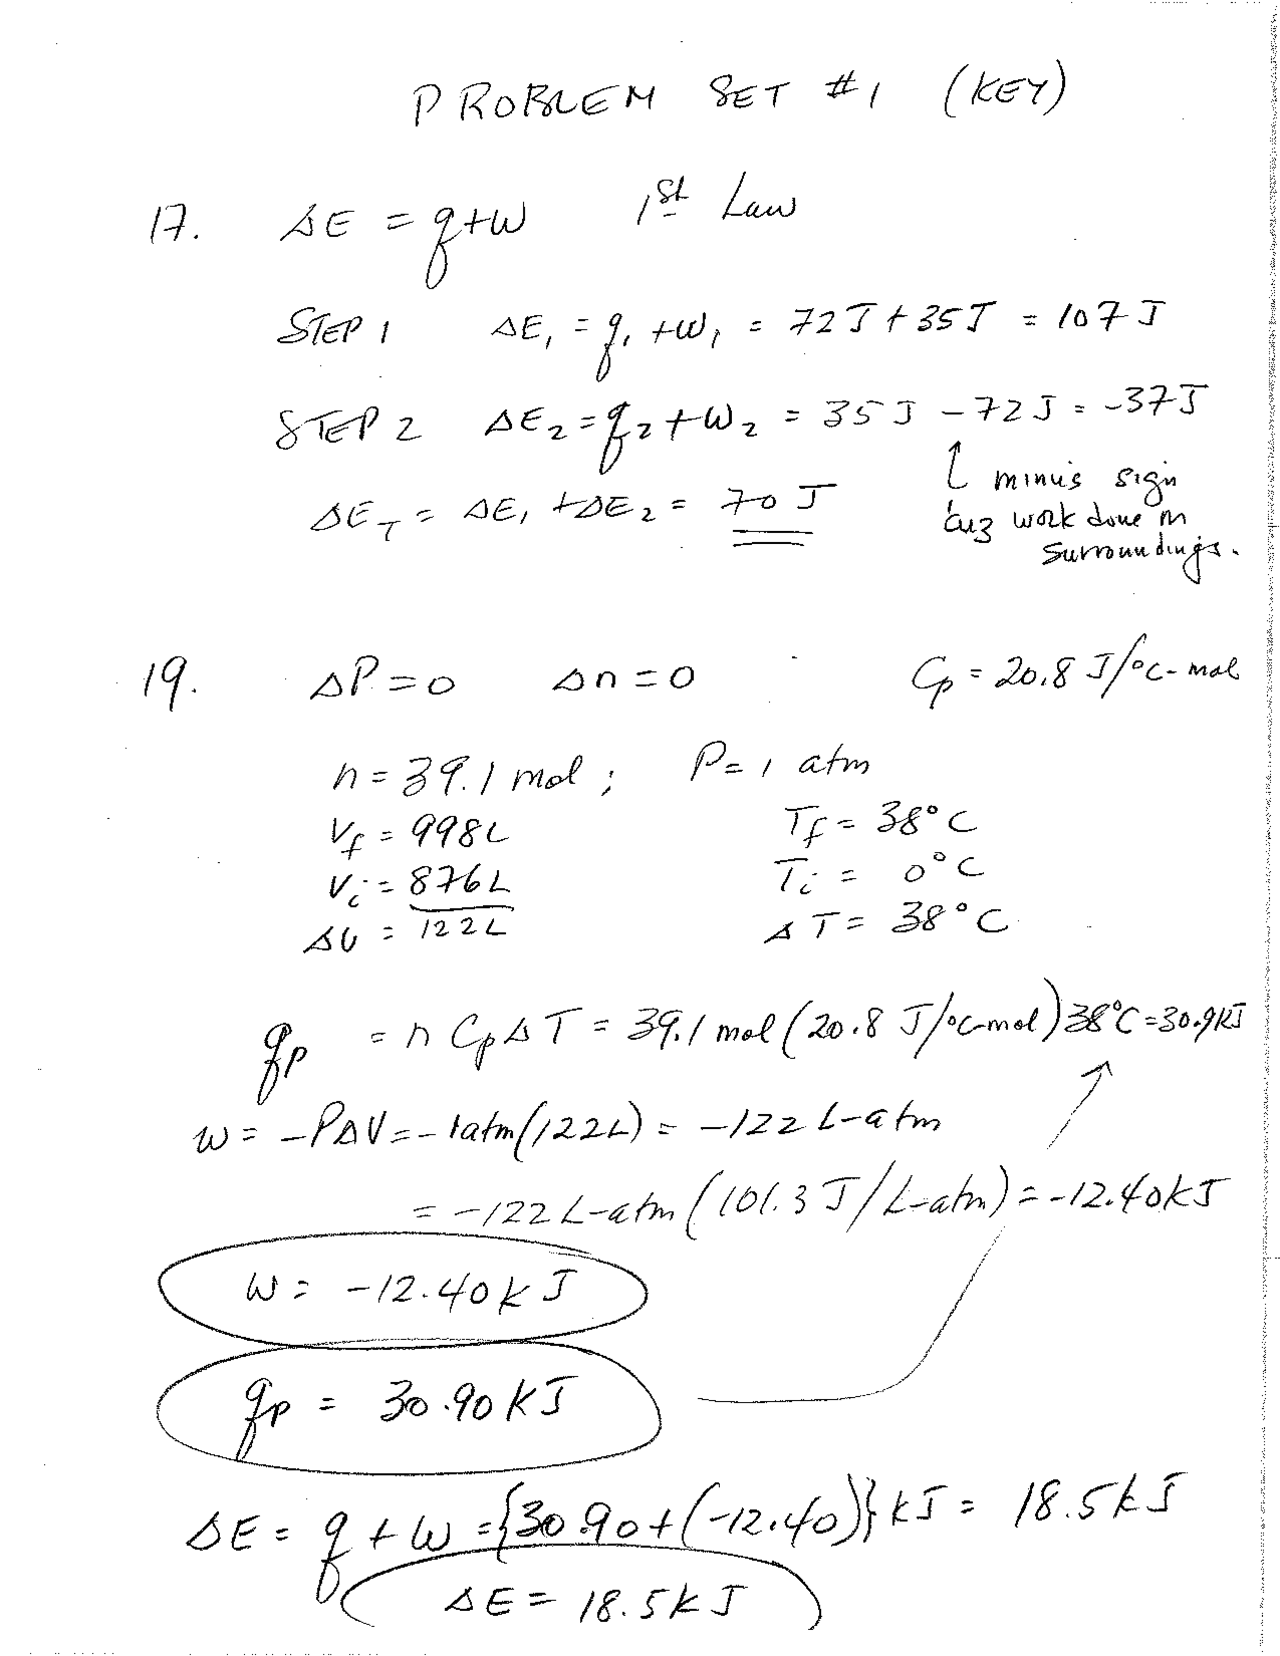 PROBLEM SET #1 (KEY)
17. ΔE = q+w 1st Law
STEP 1 ΔE₁ = q₁ + w₁ = 72J + 35J = 107J
STEP 2 ΔE₂ = q₂ + w₂ = 35J - 72J = -37J
minus sign
ΔE_T = ΔE₁ + ΔE₂ = 70J
cuz work done on
surroundings.
19. ΔP = 0 Δn = 0 Cp = 20.8 J/°C-mol
n = 39.1 mol ; P = 1 atm
Vf = 998L Tf = 38°C
Vi = 876L Ti = 0°C
ΔV = 122L ΔT = 38°C
qp = n Cp ΔT = 39.1 mol (20.8 J/°C-mol) 38°C = 30.9kJ
w = -PΔV = -1atm(122L) = -122 L-atm
= -122 L-atm (101.3 J/L-atm) = -12.40kJ
w = -12.40kJ
qp = 30.90kJ
ΔE = q + w = {30.90 + (-12.40)} kJ = 18.5kJ
ΔE = 18.5kJ